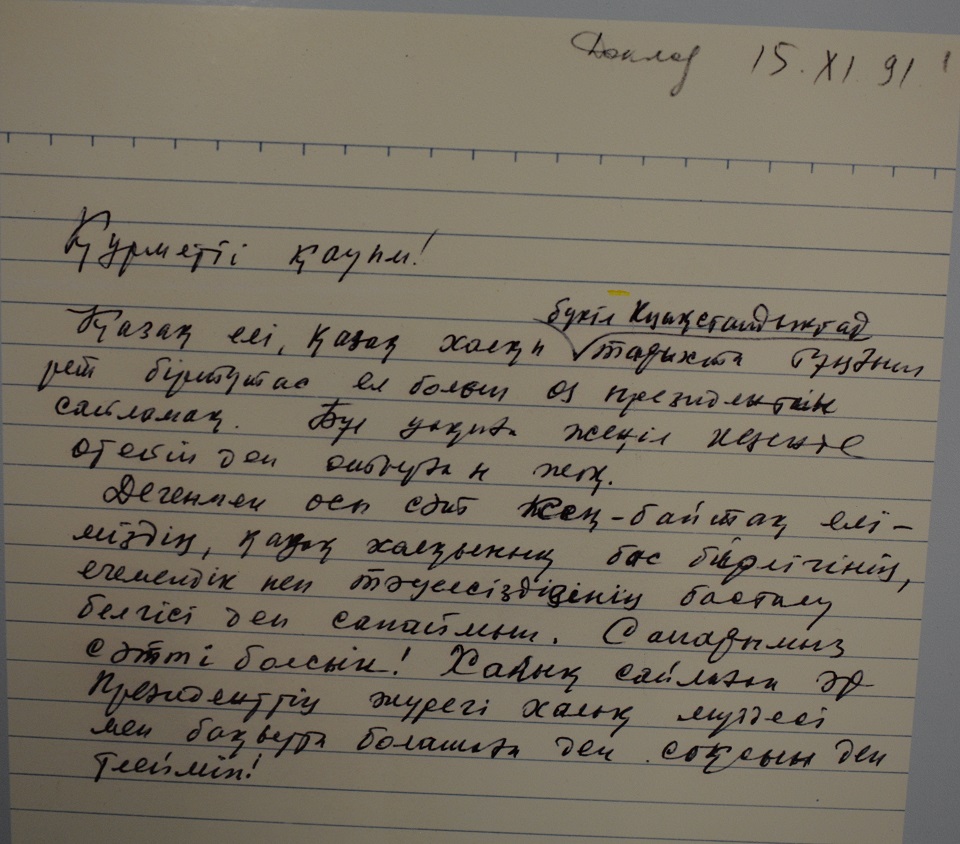 Доклад 15.XI.91
Құрметті қауым!
бүкіл Қазақстандықтар
Қазақ елі, қазақ халқы тарихта тұңғыш
рет біртұтас ел болып өз президентін
сайламақ. Бұл уақытта жеңіл кезеңге
өтетін деп
Дегенмен осы сәт кең-байтақ елі-
міздің, қазақ халқының бас бірлігінің,
егемендік пен тәуелсіздігінің басталу
белгісі деп санаймын. Сапарымыз
сәтті болсын! Халық сайлаған әр
Президенттің жүрегі халық мүддесі
мен бақытты болашағы деп соқсын деп
тілеймін!